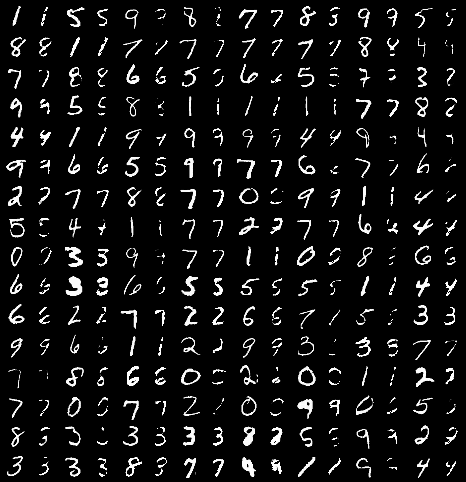 1 1 5 5 9 8 7 7 8 3 9 7 5 5
8 8 1 1 7 7 7 7 7 7 7 7 8 8 4 4
7 7 8 8 6 6 5 5 6 5 5 7 3 7
9 9 5 5 8 1 1 1 1 1 1 7 7 8 8
4 4 1 1 9 9 9 9 9 9 4 4 9 4
9 9 6 6 5 5 9 9 7 7 6 7 7 6
2 2 7 7 8 8 7 7 0 9 9 1 1 4
5 5 4 4 1 1 7 7 2 2 7 7 6 4 4
0 3 3 9 7 7 1 1 0 0 8 6 6
6 6 3 3 6 5 5 5 5 5 5 1 1 4 4
6 6 2 2 7 7 2 2 6 6 7 7 5 5 3 3
9 9 6 6 1 1 2 2 9 9 3 3 3 7 7
7 8 8 6 6 0 2 0 1 1 2 2
7 7 0 0 7 7 2 0 0 9 9 0 0 5
8 3 3 3 3 3 8 2 5 5 9 9 2 2
3 3 3 3 8 3 7 7 9 9 1 1 9 4 4